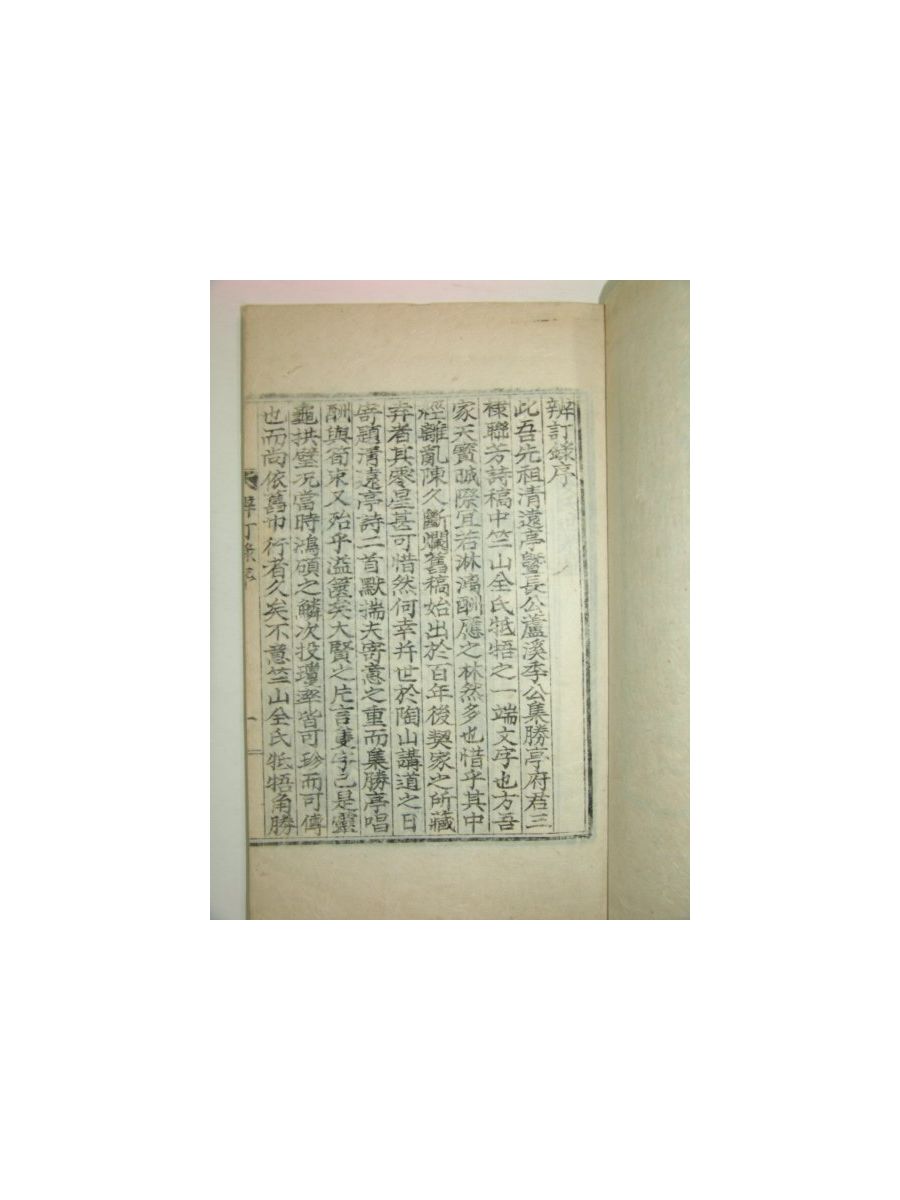 辨訂錄序
此吾先祖清遠亭曁長公蘆溪李公集勝亭府君三
棣聯芳詩稿中竺山全氏牴牾之一端文字也方吾
家天寶 際宜若淋 酬應之林然多也惜乎其中
經離亂陳久斷爛舊稿始出於百年後契家之所藏
弆者其零星甚可惜然何幸幷世於陶山講道之日
寄題淸遠亭詩二首默揣夫寄意之重而集勝亭唱
酬與筍束又殆乎溢篋矣大賢之片言隻字已是靈
龜拱璧况當時鴻碩之鱗次投瓊率皆可珍而可傳
也而尚依舊巾行者久矣不意竺山全氏牴牾角勝
辨訂錄序
一